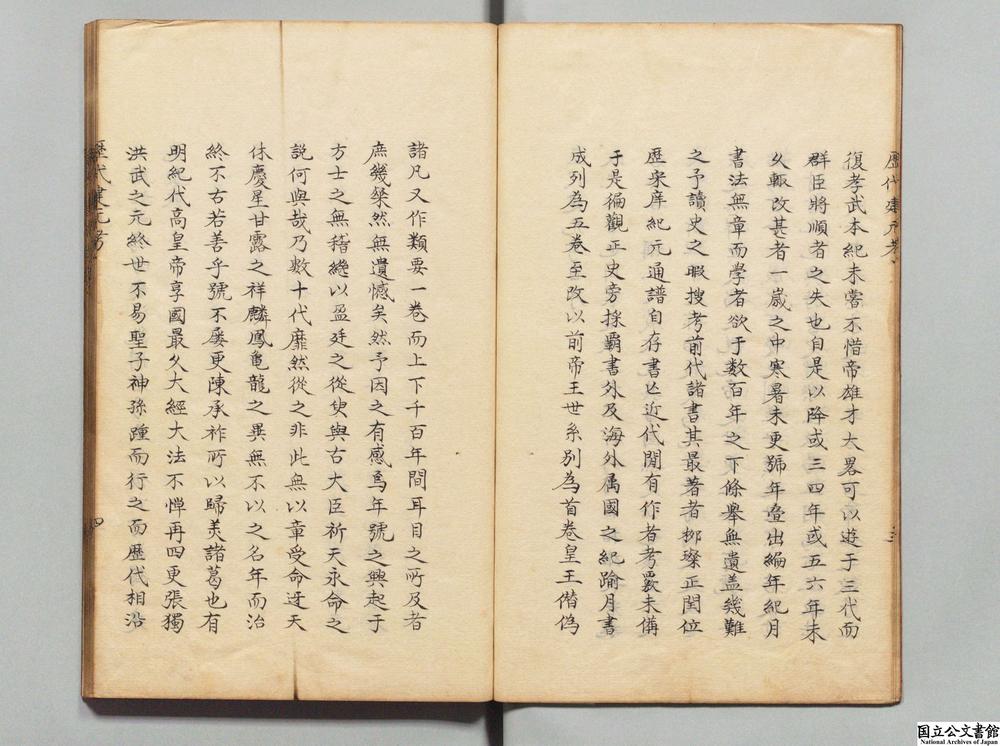 歷代建元考
三
復孝武本紀未嘗不惜帝雄才大畧可以遊于三代而
群臣將順者之失也自是以降或三四年或五六年未
久輒改甚者一嵗之中寒暑未更號年疊出編年紀月
書法無章而學者欲于数百年之下條舉無遺盖幾難
之予讀史之暇搜考前代諸書其最著者柳璨正閏位
歷宋庠紀元通譜自存書亡近代間有作者考覈未備
于是徧觀正史旁採覇書外及海外属國之紀踰月書
成列為五卷至改以前帝王世系別為首卷皇王僭偽
諸凡又作類要一卷而上下千百年間耳目之所及者
庶幾粲然無遺憾矣然予因之有感焉年號之興起于
方士之無稽繼以盈廷之從臾與古大臣祈天永命之
説何與哉乃数十代靡然從之非此無以章受命迓天
休慶星甘露之祥麟鳳亀龍之異無不以之名年而治
終不古若善乎號不屡更陳承祚所以歸美諸葛也有
明紀代高皇帝享國最久大經大法不憚再四更張獨
洪武之元終世不易聖子神孫踵而行之而歷代相沿
歷代建元考
四
国立公文書館
National Archives of Japan